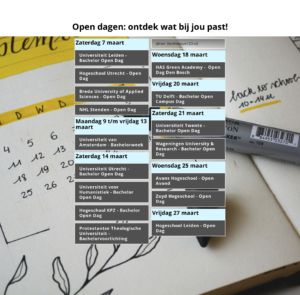 Open dagen: ontdek wat bij jou past!
Zaterdag 7 maart
Universiteit Leiden -
Bachelor Open Dag
Hogeschool Utrecht - Open
Dag
Breda University of Applied
Sciences - Open Dag
NHL Stenden - Open Dag
Maandag 9 t/m vrijdag 13
maart
Universiteit van
Amsterdam - Bachelorweek
Zaterdag 14 maart
Universiteit Utrecht -
Bachelor Open Dag
Universiteit voor
Humanistiek - Bachelor
Open Dag
Hogeschool KPZ - Bachelor
Open Dag
Protestantse Theologische
Universiteit -
Bachelorvoorlichting
Woensdag 18 maart
HAS Green Academy - Open
Dag Den Bosch
Vrijdag 20 maart
TU Delft - Bachelor Open
Campus Dag
Zaterdag 21 maart
Universiteit Twente -
Bachelor Open Dag
Wageningen University &
Research - Bachelor Open
Dag
Woensdag 25 maart
Avans Hogeschool - Open
Avond
Zuyd Hogeschool - Open
Dag
Vrijdag 27 maart
Hogeschool Leiden - Open
Dag
D W D
4 5 6
11 12 13
18 19 20
25 26
back 2 school